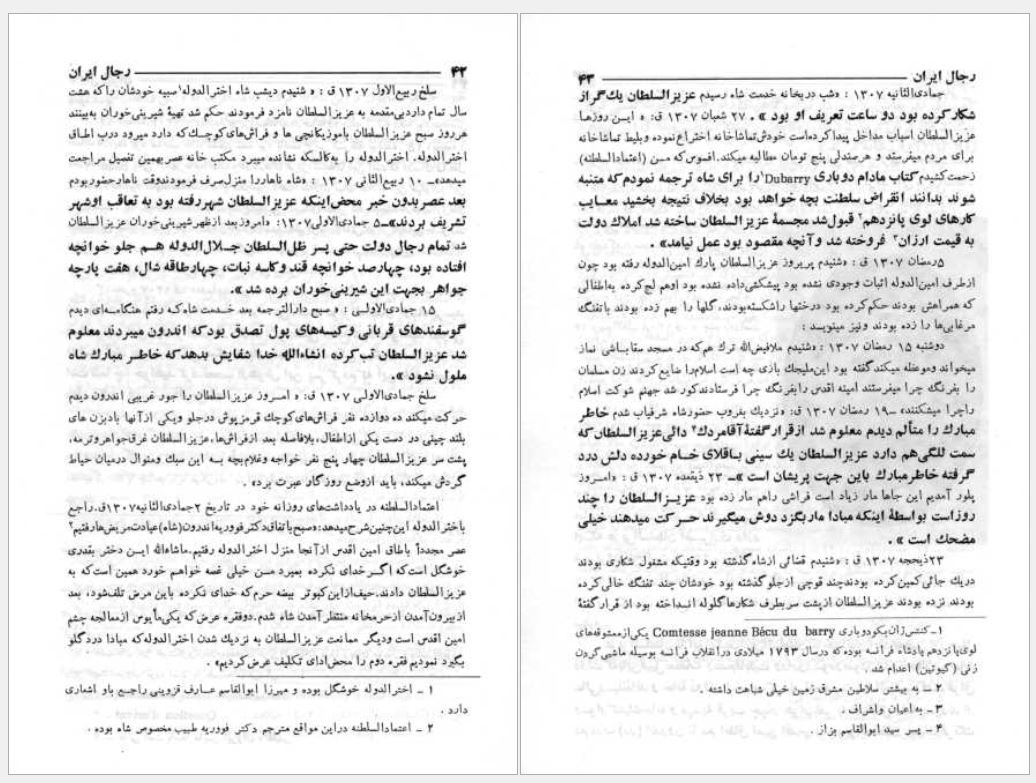 ۴۲ رجال ایران
سلخ ربیع‌الاول ۱۳۰۷ ق : « شنیدم دیشب شاه اخترالدوله۱ صبیه خودشان را که هفت
سال تمام دارد بی‌مقدمه به عزیزالسلطان نامزد فرمودند حکم شد تهیهٔ شیرینی‌خوران به‌بینند
هر روز صبح عزیزالسلطان باموزیکانچی ها و فراش‌های کوچک که دارد میرود درب اطاق
اخترالدوله. اخترالدوله را به‌کالسکه نشانده میبرد مکتب خانه عصر بهمین تفصیل مراجعت
میدهد»ـ ۱۰ ربیع‌الثانی ۱۳۰۷ : «شاه ناهار را منزل صرف فرمودند وقت ناهار حضور بودم
بعد عصر بدون خبر محض اینکه عزیزالسلطان شهر رفته بود به تعاقب او شهر
تشریف بردند»ـ ۵ جمادی‌الاولی ۱۳۰۷: «امروز بعد از ظهر شیرینی خوران عزیزالسلطان
شد تمام رجال دولت حتی پسر ظل‌السلطان جلال‌الدوله هم جلو خوانچه
افتاده بود، چهارصد خوانچه قند و کاسه نبات، چهارطاقه شال، هفت پارچه
جواهر بجهت این شیرینی خوران برده شد ».
۱۵ جمادی‌الاولی : « صبح دارالترجمه بعد خدمت شاه که رفتم هنگامه‌ای دیدم
گوسفندهای قربانی و کیسه‌های پول تصدق بود که اندرون میبردند معلوم
شد عزیزالسلطان تب کرده انشاءالله خدا شفایش بدهد که خاطر مبارک شاه
ملول نشود ».
سلخ جمادی‌الاولی ۱۳۰۷ ق: « امروز عزیزالسلطان را جور غریبی اندرون دیدم
حرکت میکند ده دوازده نفر فراش‌های کوچک قرمزپوش در جلو و یکی از آنها بادبزن های
بلند چینی در دست یکی از اطفال، بلافاصله بعد از فراش‌ها، عزیزالسلطان غرق جواهر و ترمه،
پشت سر عزیزالسلطان چهار پنج نفر خواجه و غلام بچه به این سبک و منوال در میان حیاط
گردش میکند، باید از وضع روزگار عبرت برد» .
اعتمادالسلطنه در یادداشت‌های روزانه خود در تاریخ ۲ جمادی‌الثانیه ۱۳۰۷ ق. راجع
باخترالدوله این چنین شرح میدهد: «صبح با تفاق دکتر فووریه اندرون (شاه) عیادت مریض‌ها رفتیم۲
عصر مجدداً باطاق امین اقدس از آنجا منزل اخترالدوله رفتیم. ماشاءالله این دختر بقدری
خوشگل است که اگر خدای نکرده بمیرد من خیلی غصه خواهم خورد همین است که به
عزیزالسلطان دادند. حیف از این کبوتر بیضه حرم که خدای نکرده باین مرض تلف شود، بعد
از بیرون آمدن از حرمخانه منتظر آمدن شاه شدم. دو فقره عرض که یکی مأیوس از معالجه چشم
امین اقدس است و دیگر ممانعت عزیزالسلطان به نزدیک شدن اخترالدوله که مبادا درد گلو
بگیرد نمودیم فقره دوم را محض ادای تکلیف عرض کردیم» .
۱ ـ اخترالدوله خوشگل بوده و میرزا ابوالقاسم عارف قزوینی راجع باو اشعاری
دارد .
۲ ـ اعتمادالسلطنه در این مواقع مترجم دکتر فووریه طبیب مخصوص شاه بوده .
رجال ایران ۴۳
جمادی‌الثانیه ۱۳۰۷ : «شب دربخانه خدمت شاه رسیدم عزیزالسلطان یک گراز
شکار کرده بود دو ساعت تعریف او بود » . ۲۷ شعبان ۱۳۰۷ ق: « این روزها
عزیزالسلطان اسباب مداخل پیدا کرده است خودش تماشاخانه اختراع نموده و بلیط تماشاخانه
برای مردم میفرستد و هر صندلی پنج تومان مطالبه میکند. افسوس که من (اعتمادالسلطنه)
زحمت کشیدم کتاب مادام دوباری Dubarry۱ را برای شاه ترجمه نمودم که متنبه
شوند بدانند انقراض سلطنت بچه خواهد بود بخلاف نتیجه بخشید معایب
کارهای لوی پانزدهم۲ قبول شد مجسمهٔ عزیزالسلطان ساخته شد املاک دولت
به قیمت ارزان۳ فروخته شد و آنچه مقصود بود عمل نیامد» .
۵ رمضان ۱۳۰۷ ق : «شنیدم پریروز عزیزالسلطان پارک امین‌الدوله رفته بود چون
از طرف امین‌الدوله اثبات وجودی نشده بود پیشکشی داده نشده بود اوهم لج کرده به‌اطفالی
که همراهش بودند حکم کرده بود درختها را شکسته بودند، گلها را بهم زده بودند باتفنگ
مرغابی‌ها را زده بودند و نیز مینویسد :
دوشنبه ۱۵ رمضان ۱۳۰۷ : «شنیدم ملافیض‌الله ترک هم که در مسجد سقاباشی نماز
میخواند و موعظه میکند گفته بود این ملیجک بازی چه است اسلام را ضایع کردند زن مسلمان
را بفرنگ چرا میفرستند امینه اقدس را بفرنگ چرا فرستادند کور شد جهنم شوکت اسلام
را چرا میشکنند» ـ ۱۹ رمضان ۱۳۰۷ ق: «نزدیک بغروب حضور شاه شرفیاب شدم خاطر
مبارک را متألم دیدم معلوم شد از قرار گفتهٔ آقامردک۴ دائی عزیزالسلطان که
سمت للگی هم دارد عزیزالسلطان یک سینی باقلای خام خورده دلش درد
گرفته خاطر مبارک باین جهت پریشان است »ـ ۲۳ ذیقعده ۱۳۰۷ ق: «امروز
پلور آمدیم این جاها مار زیاد است فراشی را هم مار زده بود عزیزالسلطان را چند
روز است بواسطهٔ اینکه مبادا مار بگزد دوش میگیرند حرکت میدهند خیلی
مضحک است » .
۲۳ ذیحجه ۱۳۰۷ ق : «شنیدم قضائی از شاه گذشته بود وقتیکه مشغول شکاری بودند
در یک جائی کمین کرده بودند چند قوچی از جلو گذشته بود خودشان چند تفنگ خالی کرده
بودند نزده بودند عزیزالسلطان از پشت سر بطرف شکارها گلوله انداخته بود از قرار گفتهٔ
۱ـ کنتس ژان بکو دوباری Comtesse jeanne Bécu du barry یکی از معشوقه‌های
لوی پانزدهم پادشاه فرانسه بوده که در سال ۱۷۹۳ میلادی در انقلاب فرانسه بوسیله ماشین گردن
زنی (گیوتین) اعدام شد .
۲ ـ به بیشتر سلاطین مشرق زمین خیلی شباهت داشته .
۳ ـ به اعیان و اشراف .
۴ ـ پسر سید ابوالقاسم بزاز .